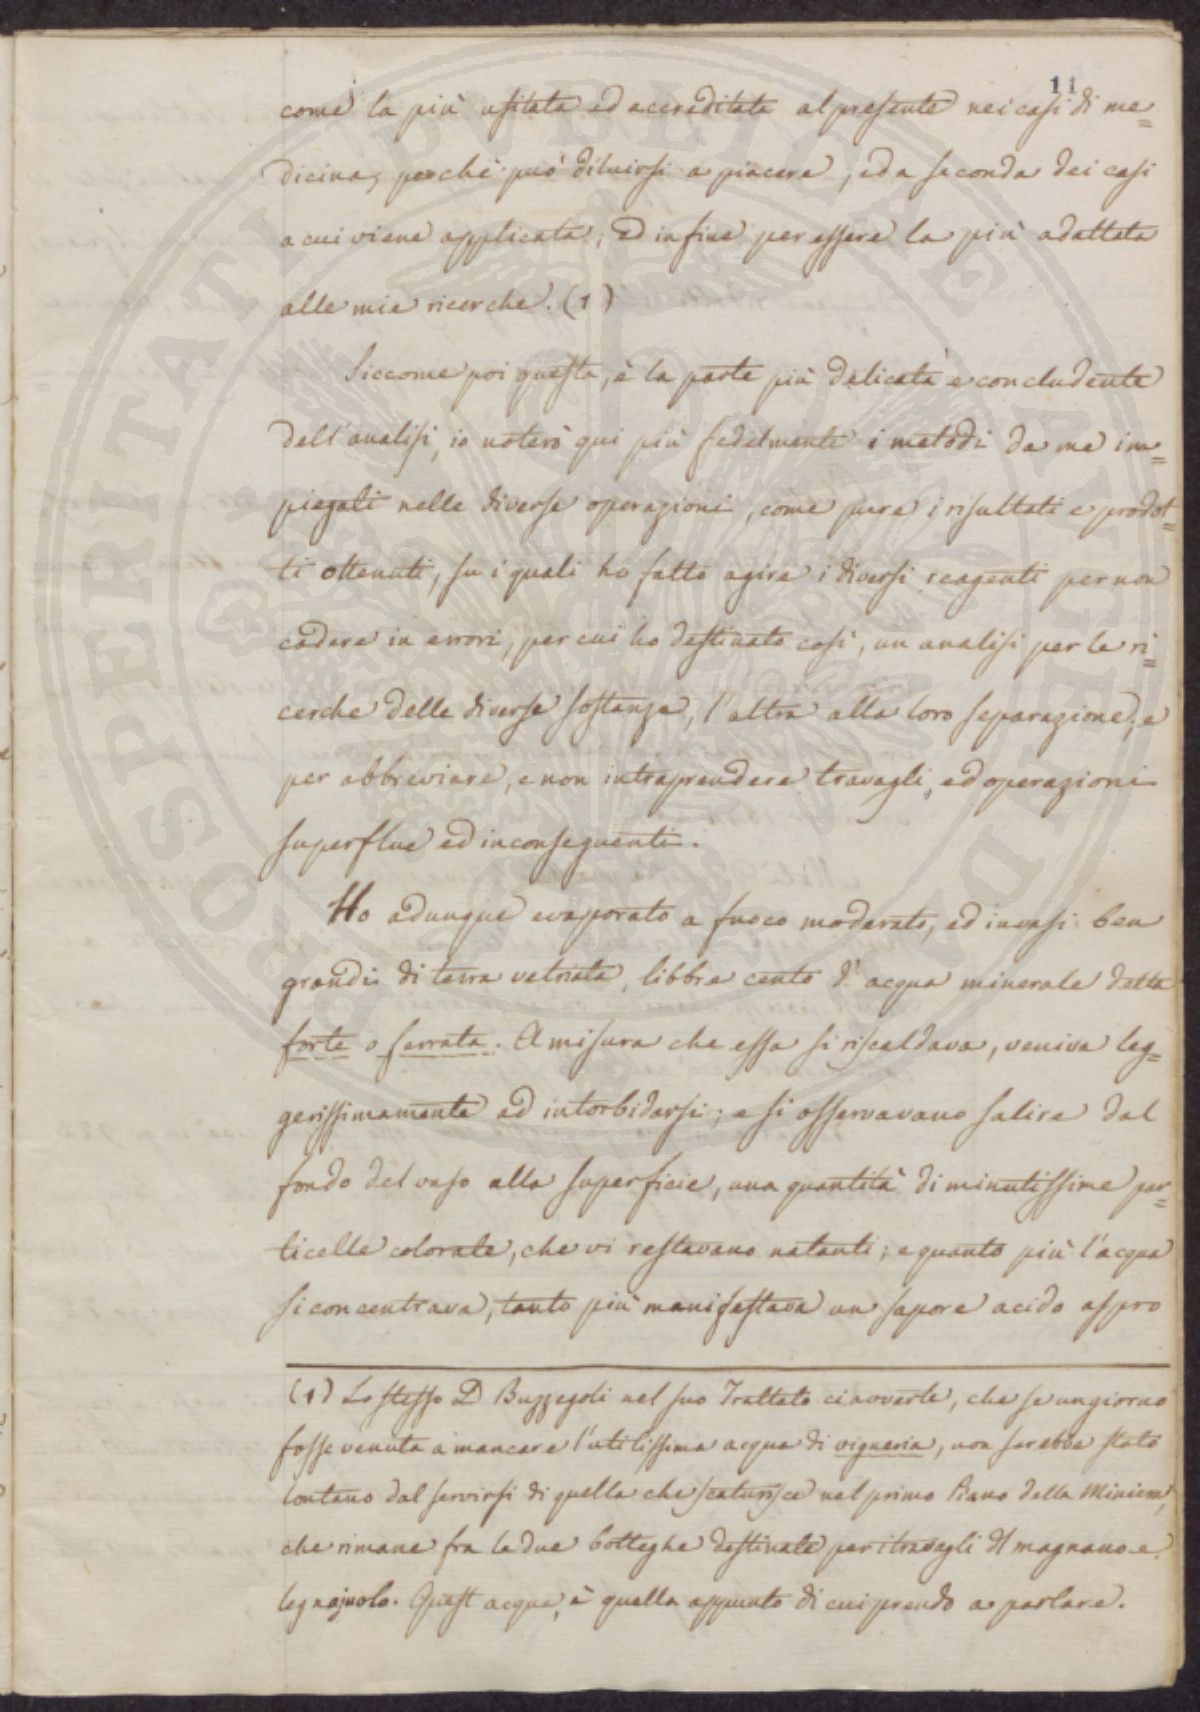 11
come la più usitata ed accreditata al presente nei casi di me=
dicina, perchè può diluirsi a piacere, ed a seconda dei casi
a cui viene applicata; ed in fine per essere la più adattata
alle mie ricerche. (1)
Siccome poi questa, è la parte più delicata e concludente
dell'analisi, io noterò qui più fedelmente i metodi da me im=
piegati nelle diverse operazioni, come pure i risultati e prodot=
ti ottenuti, su i quali ho fatto agire i diversi reagenti per non
cadere in errori, per cui ho destinato così, un analisi per le ri=
cerche delle diverse sostanze, l'altra alla loro separazione, e
per abbreviare, e non intraprendere travagli, ed operazioni
superflue ed inconseguenti.
Ho adunque evaporato a fuoco moderato, ed in vasi ben
grandi di terra vetriata, libbre cento d'acqua minerale detta
forte o ferrata. A misura che essa si riscaldava, veniva leg=
gerissimamente ad intorbidarsi; e si osservavano salire dal
fondo del vaso alla superficie, una quantità di minutissime par=
ticelle colorate, che vi restavano natanti; e quanto più l'acqua
si concentrava, tanto più manifestava un sapore acido aspro
(1) Lo stesso D Buzzegoli nel suo Trattato ci avverte, che se un giorno
fosse venuta a mancare l'utilissima acqua di vigneria, non sarebbe stato
lontano dal servirsi di quella che scaturisce nel primo Piano della Miniera,
che rimane fra le due botteghe destinate per i travagli di magnano e
legnajuolo. Quest acqua, è quella appunto di cui prendo a parlare.
PROSPERITATI PVBLICAE AVGENDAE